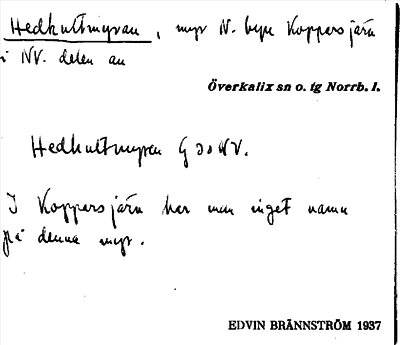 Hedkultmyran, myr N. byn Koppersjärn
i NV. delen av
Överkalix sn o. tg Norrb. l.
Hedkultmyran G 30 NV.
I Koppersjärn har man inget namn
på denna myr.
EDVIN BRÄNNSTRÖM 1937